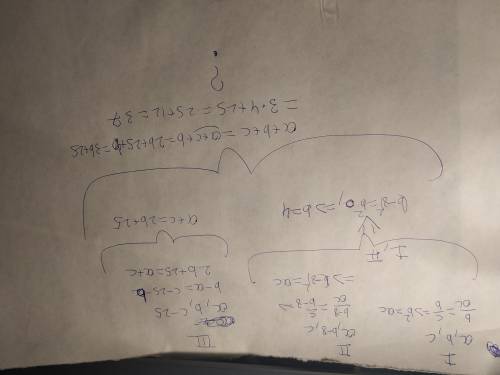 I
a, b, c
b/a = c/b => b² = ac
II
a, b-8, c
b-8/a = c/b-8 =>
=> (b-8)² = ac
III
a, b, c-25
b-a = c-25-b
2b+25 = a+c
I, II
(b-8)² = b², => b=4
a+c = 2b+25
a+b+c = a+c+b = 2b+25+b = 3b+25
= 3·4+25 = 25+12 = 37
?